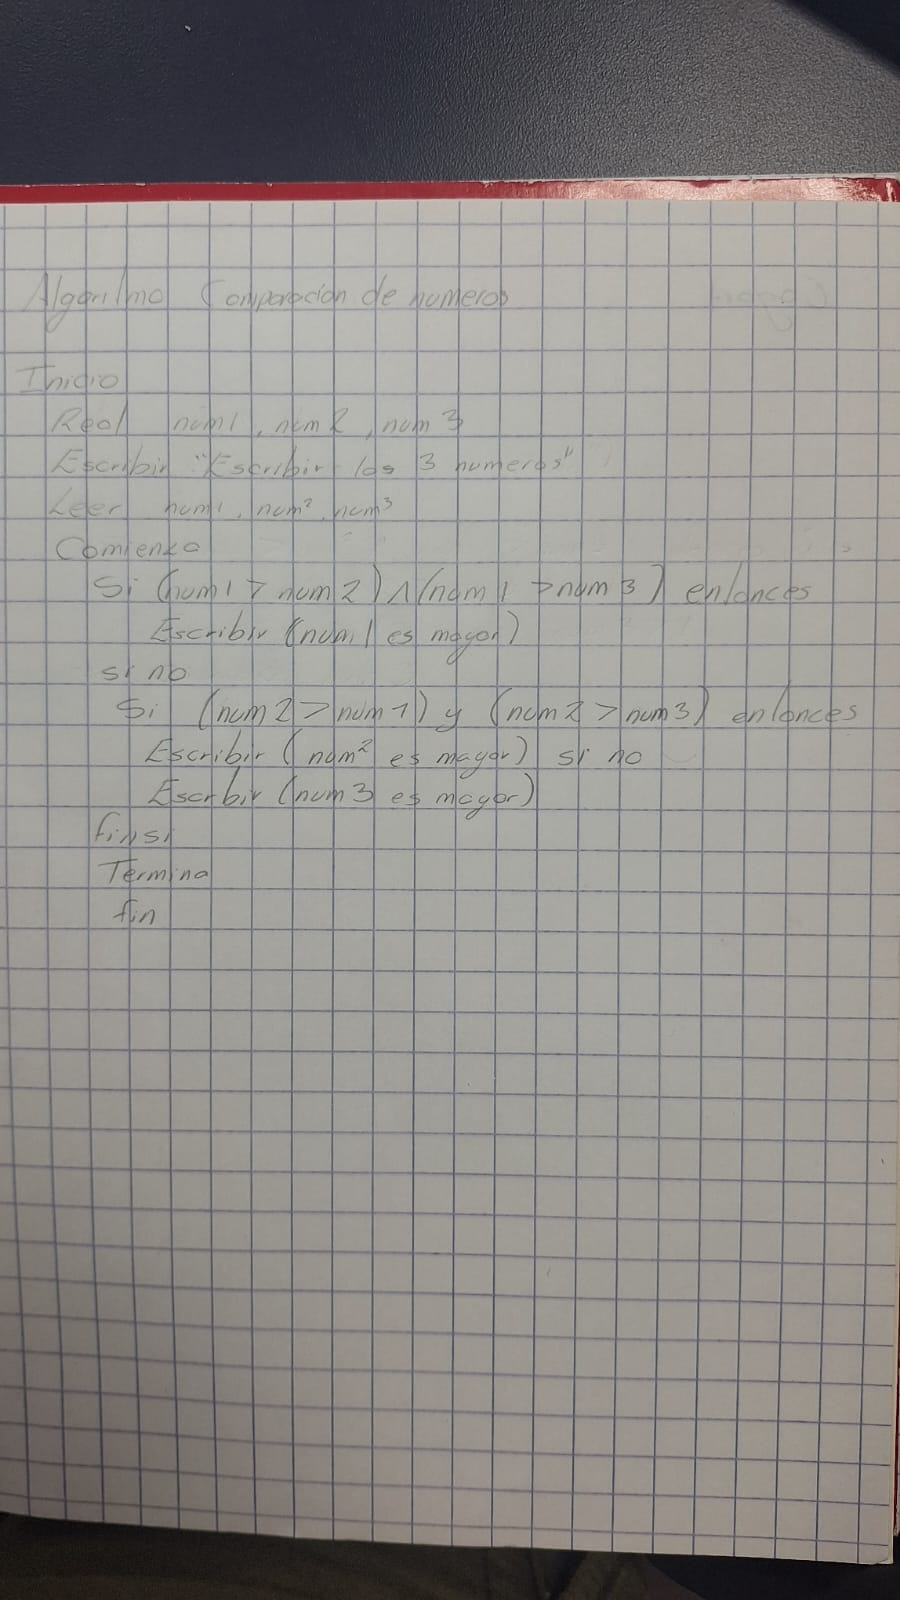 Algoritmo Comparacion de numeros
Inicio
Real num1, num2, num3
Escribir "Escribir los 3 numeros"
Leer num1, num2, num3
Comienza
Si (num1 > num2) ∧ (num1 > num3) entonces
Escribir (num1 es mayor)
si no
Si (num2 > num1) y (num2 > num3) entonces
Escribir (num2 es mayor) si no
Escrbir (num3 es mayor)
finsi
Termina
fin